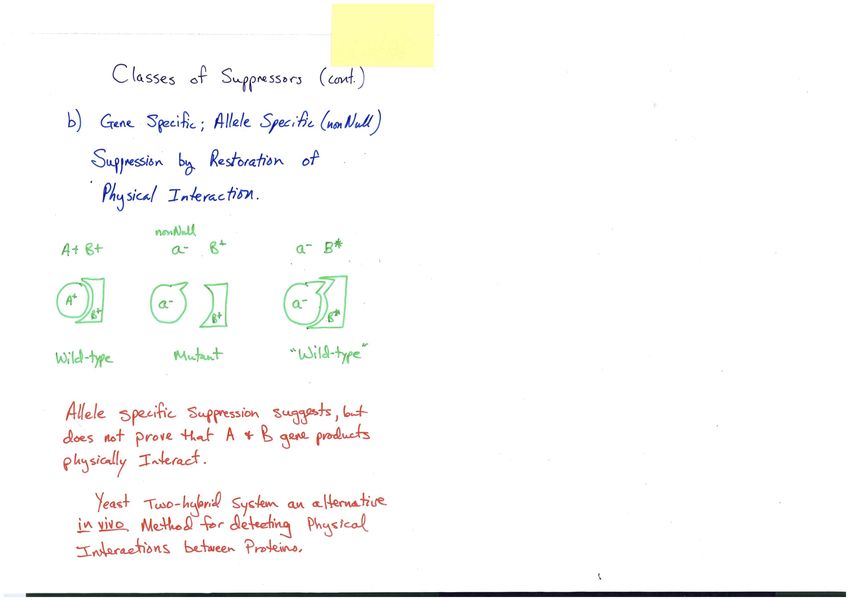 Classes of Suppressors (cont.)
b) Gene Specific; Allele Specific (nonNull)
Suppression by Restoration of
Physical Interaction.
nonNull
A+ B+ a- B+ a- B*
A+ B+ a- B+ a- B*
Wild-type Mutant "Wild-type"
Allele specific Suppression suggests, but
does not prove that A & B gene products
physically Interact.
Yeast Two-hybrid System an alternative
in vivo Method for detecting Physical
Interactions between Proteins.